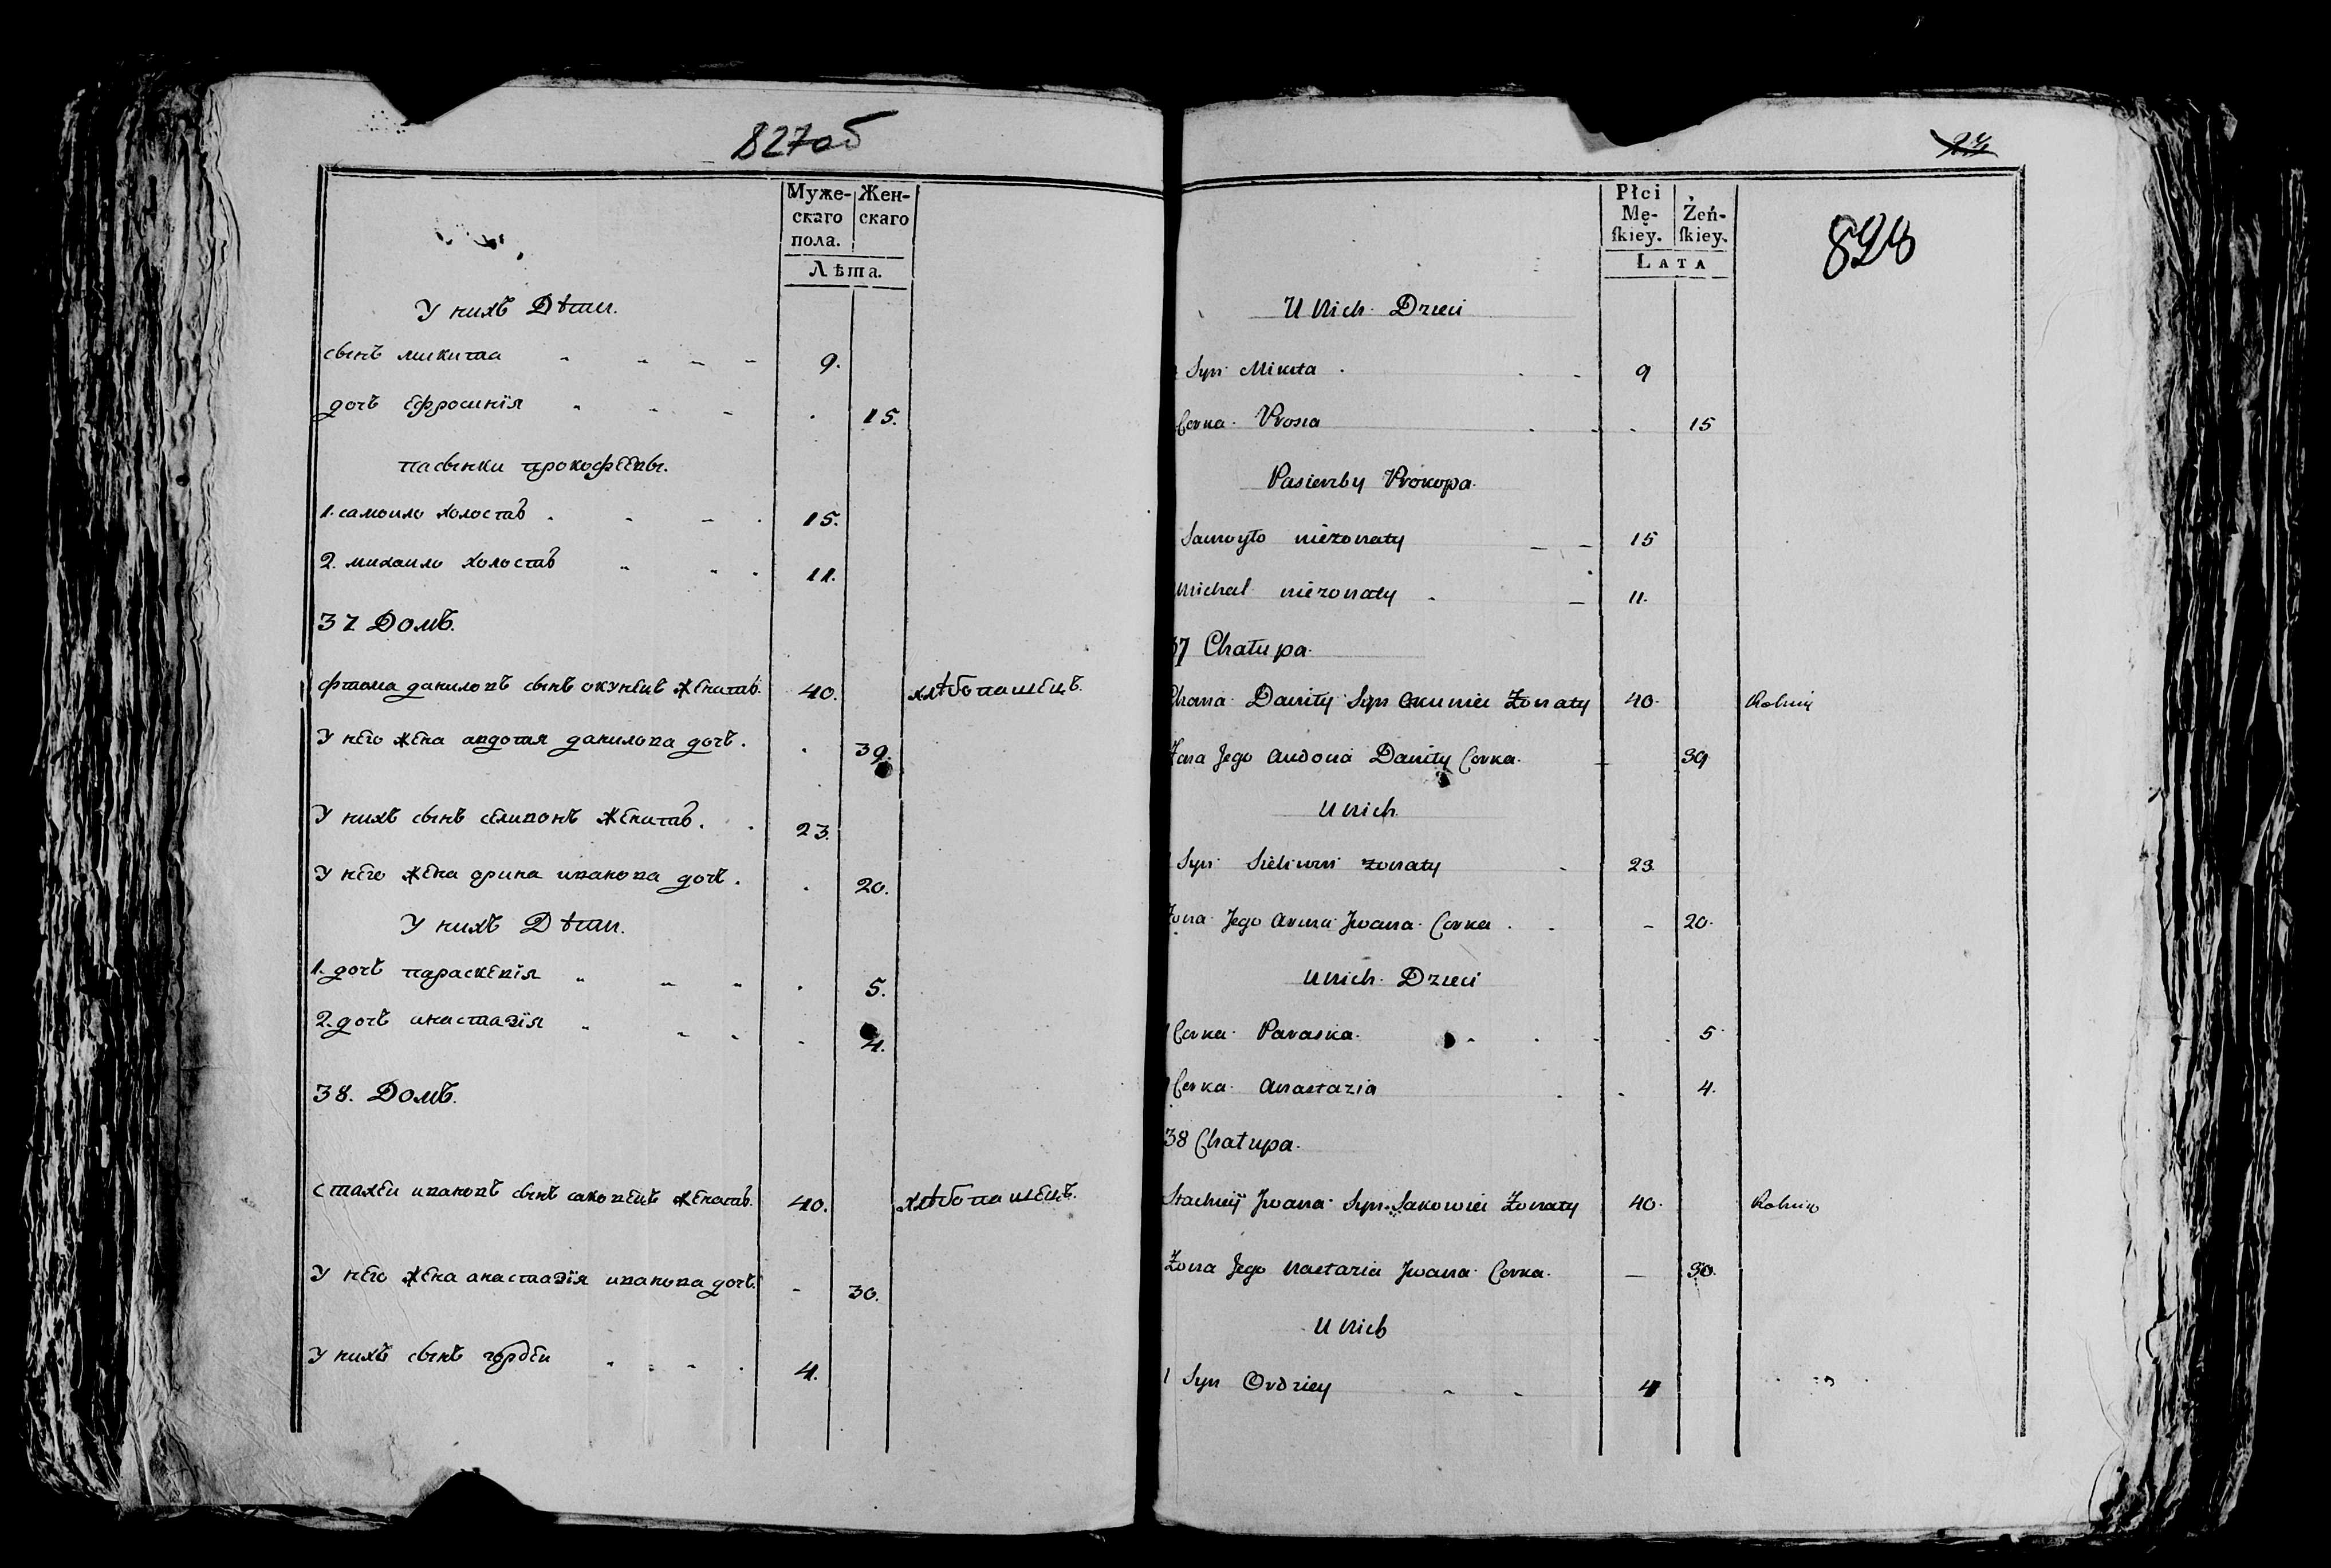 827об
Муже-
скаго
пола.
Жен-
скаго
Лѣта.
У нихъ Дѣти.
сынъ микита 9.
дочь Ефросинїя 15.
пасынки прокофѣевы.
1. самоило холостъ 15.
2. михаило холостъ 11.
37 Домъ.
фтома даниловъ сынъ окунецъ женатъ. 40. хлѣбопашецъ.
У него жена авдотя данилова дочь. 39.
У нихъ сынъ селивонъ женатъ. 23.
У него жена орина иванова дочь. 20.
У нихъ Дѣти.
1. дочь параскевїя 5.
2. дочь анастазїя 4.
38. Домъ.
стахей ивановъ сынъ саковецъ женатъ. 40. хлѣбопашецъ.
У него жена анастазїя иванова дочь. 30.
У нихъ сынъ гордей 4.
24
828
Płci
Mę-
skiey.
Żeń-
skiey.
LATA
U Nich Dzieci
Syn Mikita 9
Corka Prosia 15
Pasierzby Prokopa
Samoyło nieżonaty 15
Michał nieżonaty 11.
37 Chałupa
Choma Daniły Syn Okuniec Żonaty 40 Rolnik
Żona Jego Audocia Daniły Corka 39
U Nich
Syn Sieliwon żonaty 23
Żona Jego Arina Jwana Corka 20
U Nich Dzieci
Corka Paraska 5
Corka Anastazia 4.
38 Chałupa
Stachwiy Jwana Syn Sakowiec Żonaty 40 Rolnik
Żona Jego Nastazia Jwana Corka 30.
U Nich
1 Syn Ordziey 4